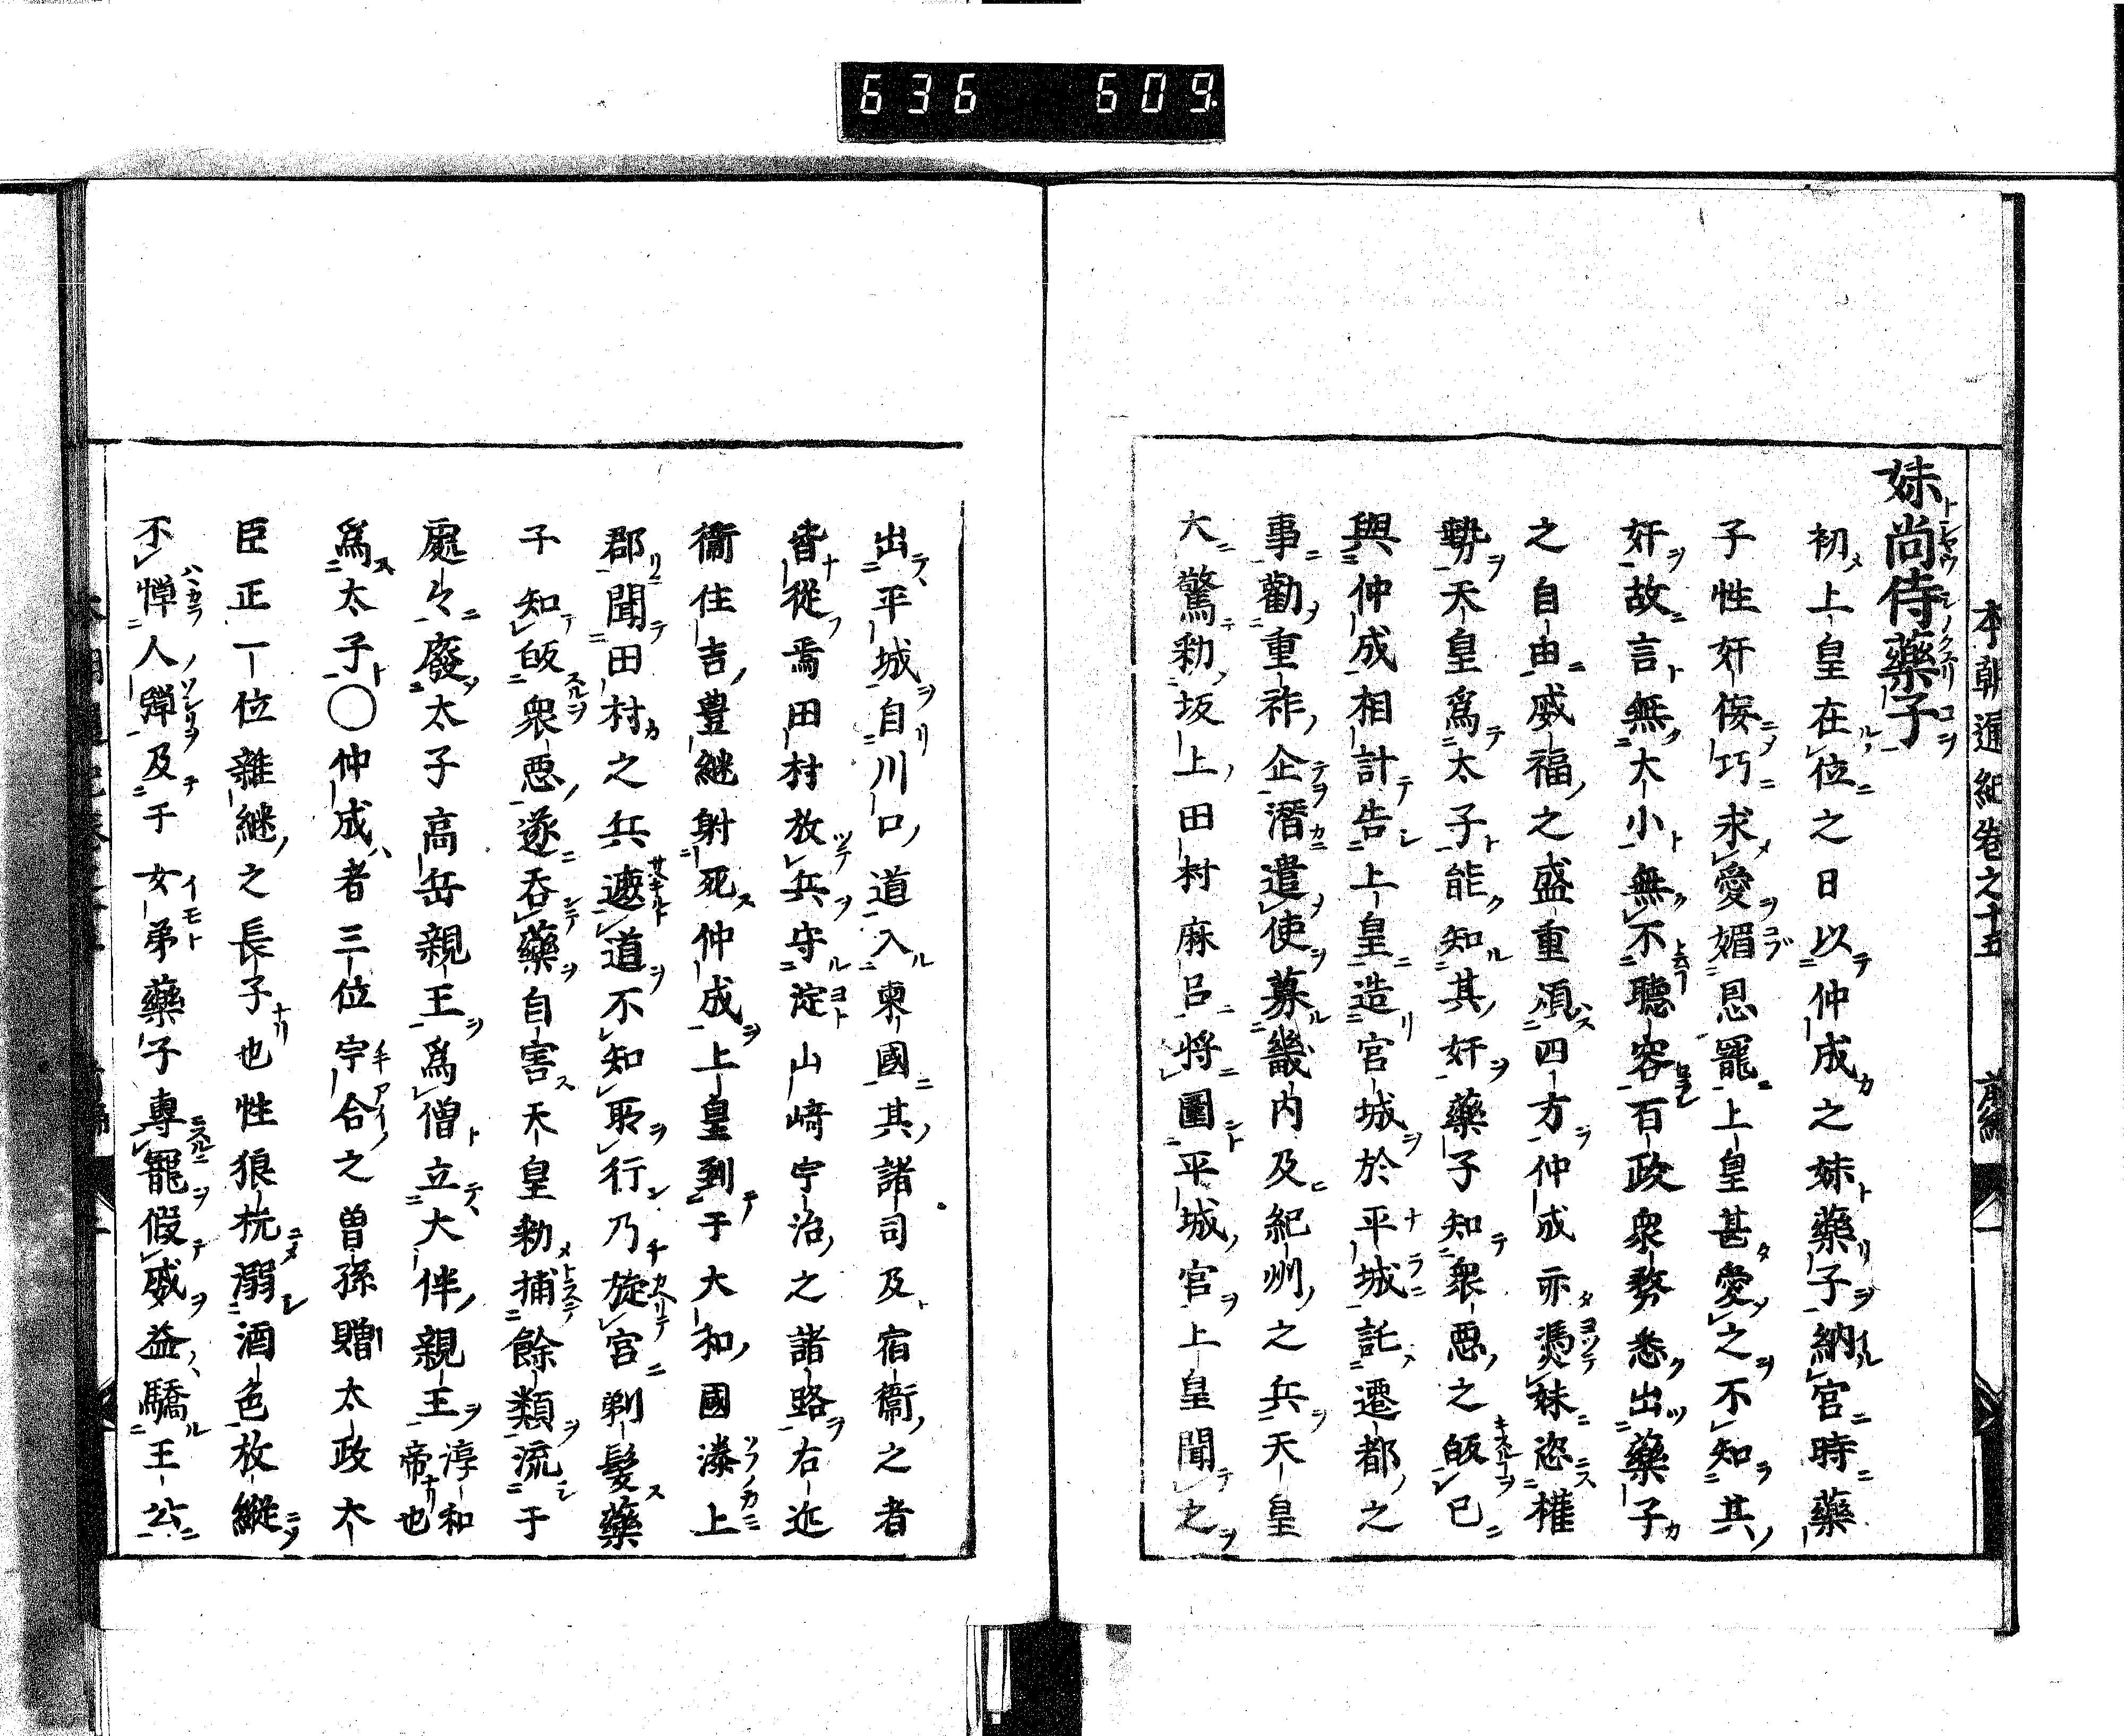 636 609.
本朝通紀卷之十五 前編
妹尚侍藥子
初上皇在位之日以仲成之妹藥子納宮時藥
子性奸佞巧求愛媚恩寵上皇甚愛之不知其
奸故言無大小無不聽容百政衆務悉出藥子
之自由威福之盛重須四方仲成亦憑妹恣權
勢天皇爲太子能知其奸藥子知衆惡之皈已
與仲成相計告上皇造宮城於平城託遷都之
事勸重祚企潛遣使募畿内及紀州之兵天皇
大驚勅坂上田村麻呂將圍平城宮上皇聞之
出平城自川口道入東國其諸司及宿衞之者
皆從焉田村放兵守淀山崎宇治之諸路右近
衞住吉豊継射死仲成上皇到于大和國漆上
郡聞田村之兵遮道不知取行乃旋宮剃髮藥
子知皈衆惡遂呑藥自害天皇勅捕餘類流于
處々廢太子高岳親王爲僧立大伴親王淳和帝也
爲太子○仲成者三位宇合之曽孫贈太政大
臣正一位雜継之長子也性狼抗溺酒色放縦
不憚人彈及于女弟藥子專寵假威益驕王公